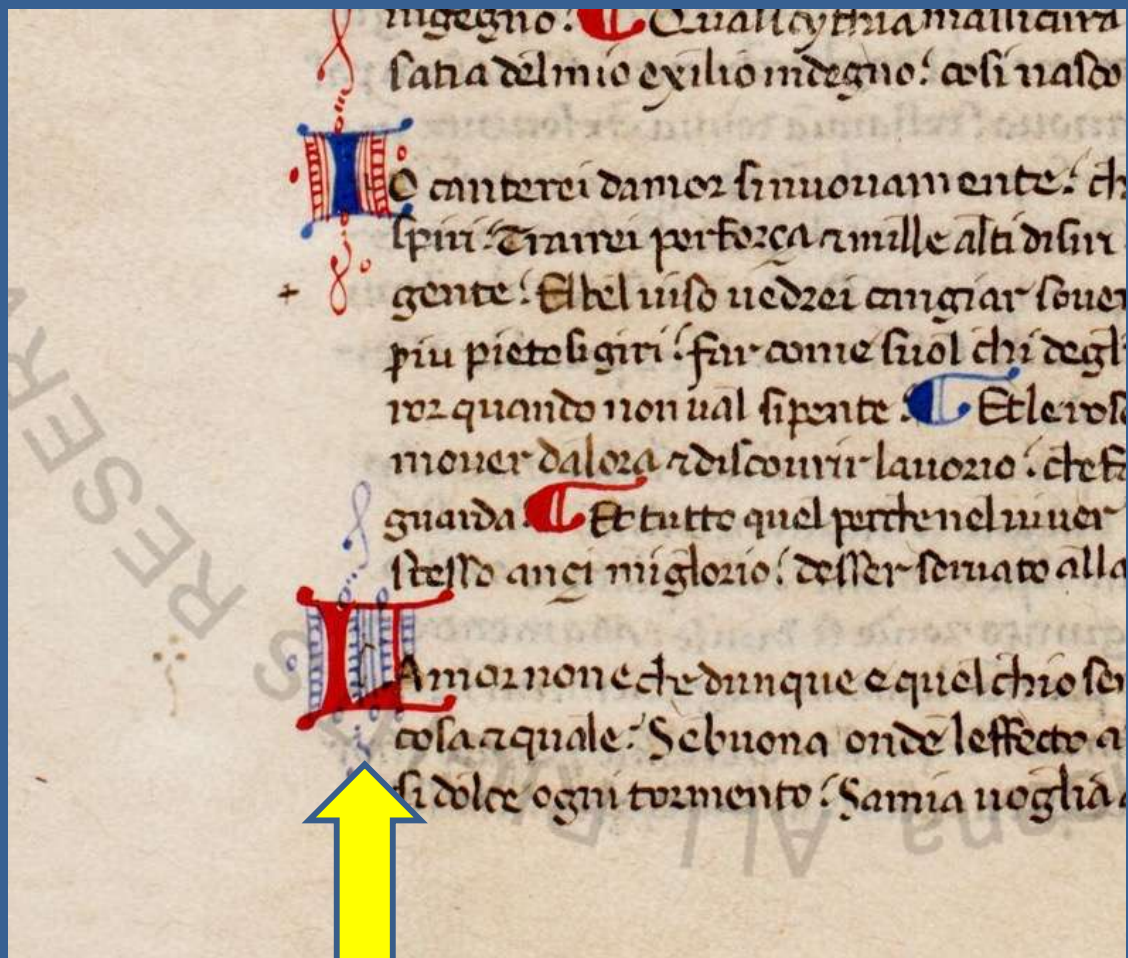 ingegno: Qualscythia massicura
satia del mio exilio indegno: cosi nasco
IO canterei damor sinuovamente: ch
spiri: Trarrei perforça & mille alti disiri
gente: El bel uiso uedrei cangiar souer
piu pietosi giri: far come suol chi degl
ror quando non ual sipente: Et le rose
mouer dalora & discourir lauorio: che fa
guarda. Et tutto quel perche nel uiuer
stesso ançi miglorio: desser seruato alla
LAmor non e che dunque e quel chio sen
cosa & quale: Se buona onde leffecto a
si dolce ogni tormento: Samia uoglia a